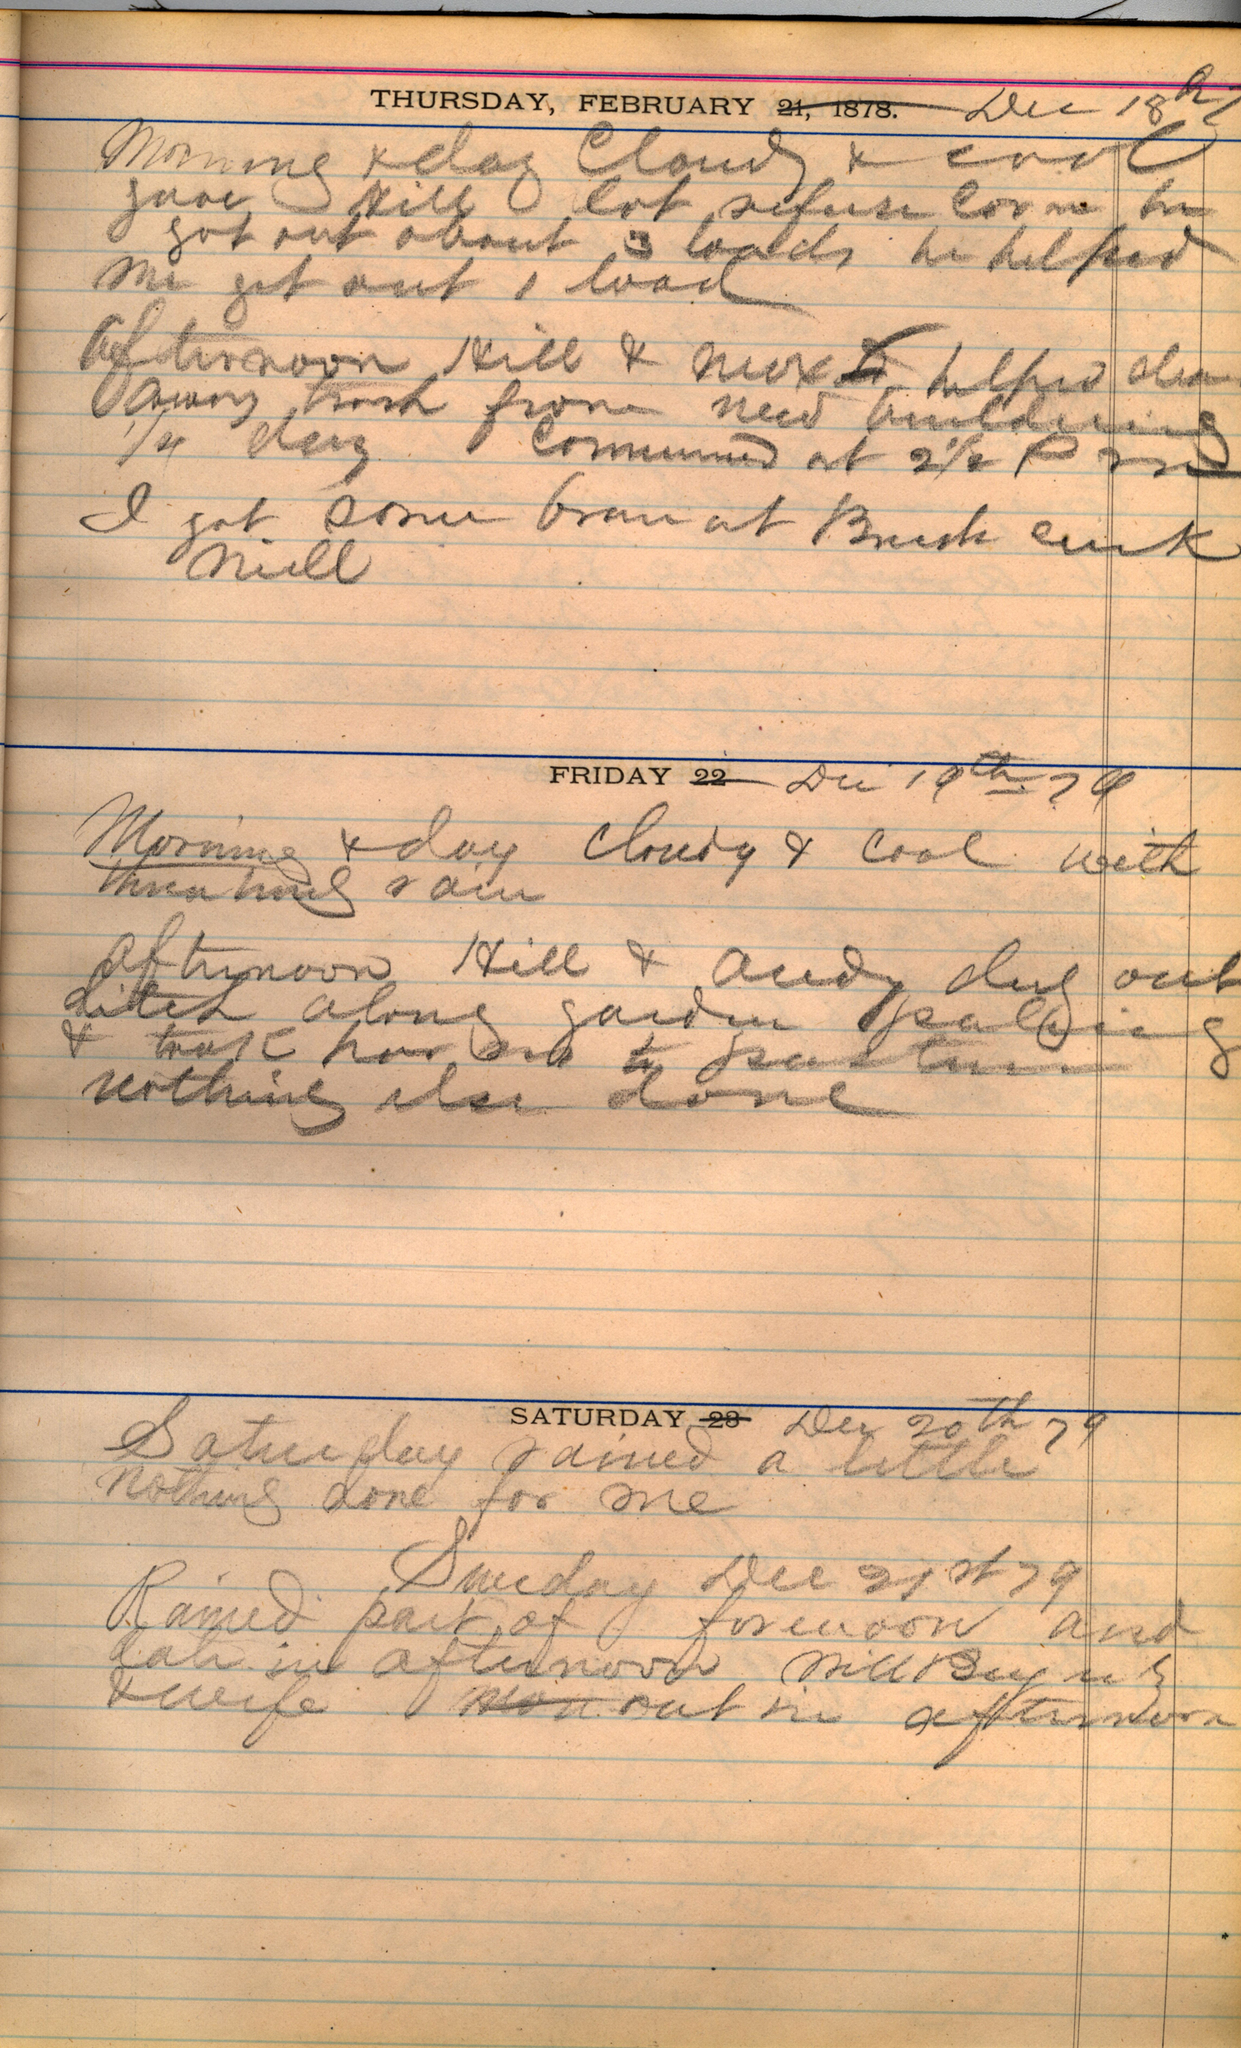 THURSDAY, FEBRUARY 21, 1878. Dec 18th
Morning & day Cloudy & cool
gave Hill lot refuse Corn he
got out about 3 loads he helped
me get out 1 load
Afternoon Hill & helped clean
away trash from new building
1/4 day Commenced at 2 1/2 P m
I got some bran at Brush creek
Mill
FRIDAY 22 Dec 19th 79
Morning & day cloudy & cool with
threatning rain
afternoon Hill & Andy dug out
ditch along garden paling
& took horses to pasture
nothing else done
SATURDAY 23 Dec 20th 79
Saturday rained a little
nothing done for me
Sunday Dec 21st 79
Rained part of forenoon and
late in afternoon Will
& wife out in afternoon